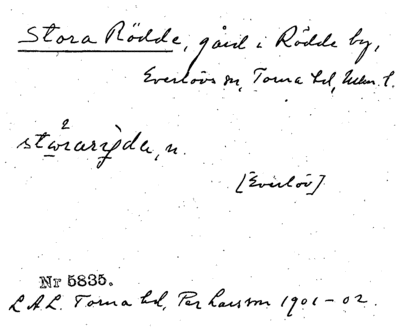 Stora Rödde, gård i Rödde by,
Everlövs sn, Torna hd, Mlm. l.
n.
[Everlöv]
Nr 5835.
L.A.L. Torna hd, Per Larsson 1901-02.